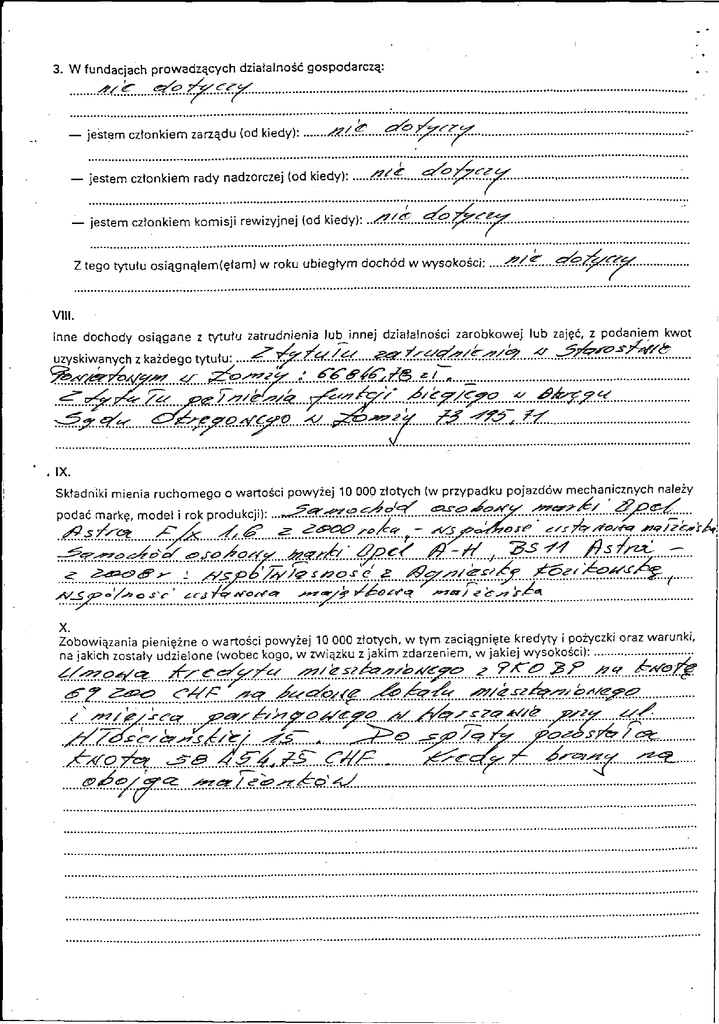 3. W fundacjach prowadzących działalność gospodarczą:
nie dotyczy
— jestem członkiem zarządu (od kiedy): nie dotyczy
— jestem członkiem rady nadzorczej (od kiedy): nie dotyczy
— jestem członkiem komisji rewizyjnej (od kiedy): nie dotyczy
Z tego tytułu osiągnąłem(ęłam) w roku ubiegłym dochód w wysokości: nie dotyczy
VIII.
Inne dochody osiągane z tytułu zatrudnienia lub innej działalności zarobkowej lub zajęć, z podaniem kwot
uzyskiwanych z każdego tytułu: Z tytułu zatrudnienia w Starostwie
Powiatowym w Łomży : 66846,78 zł.
Z tytułu pełnienia funkcji biegłego w Okręgu
Sądu Okręgowego w Łomży 73 195,71
IX.
Składniki mienia ruchomego o wartości powyżej 10 000 złotych (w przypadku pojazdów mechanicznych należy
podać markę, model i rok produkcji): Samochód osobowy marki Opel
Astra F/x 1,6 z 2000 roku, - wspólność ustawowa małżeńska
Samochód osobowy marki Opel A-H, BS11 Astra -
z 2008r : współwłasność z Agnieszką Kozikowską,
wspólność ustawowa majątkowa małżeńska
X.
Zobowiązania pieniężne o wartości powyżej 10 000 złotych, w tym zaciągnięte kredyty i pożyczki oraz warunki,
na jakich zostały udzielone (wobec kogo, w związku z jakim zdarzeniem, w jakiej wysokości):
Umowa kredytu mieszkaniowego z PKO BP na kwotę
69 200 CHF na budowę lokalu mieszkaniowego
i miejsca parkingowego w Warszawie przy ul.
Włościańskiej 15. Do spłaty pozostała
kwota 58 454,75 CHF. Kredyt brany na
obojga małżonków